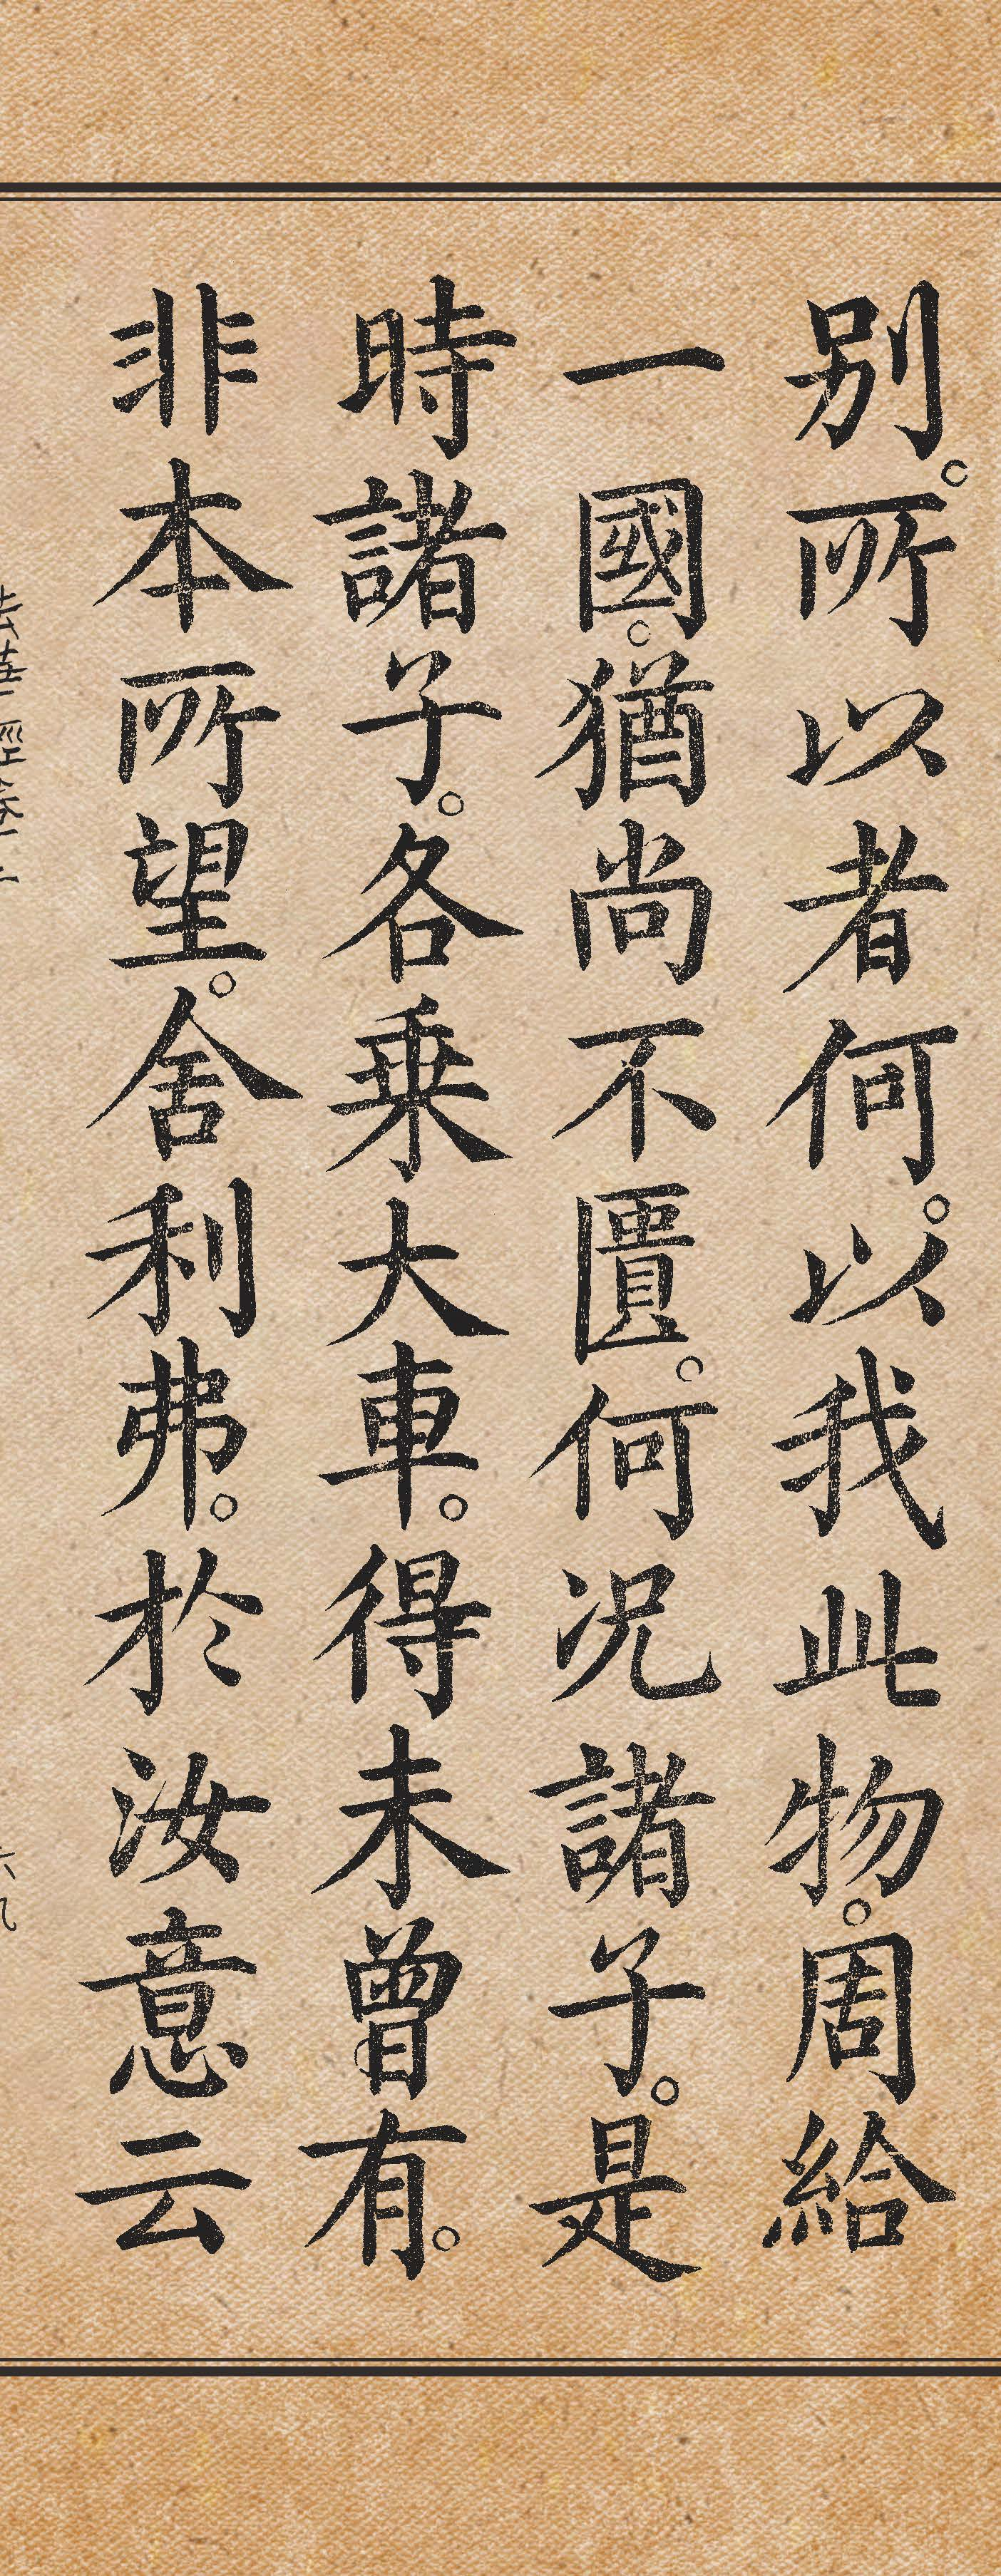 别。所以者何。以我此物。周給
一國。猶尚不匱。何況諸子。是
時諸子。各乗大車。得未曾有。
非本所望。舍利弗。於汝意云